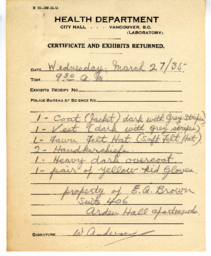 HEALTH DEPARTMENT
CITY HALL VANCOUVER, B.C.
(LABORATORY)
CERTIFICATE AND EXHIBITS RETURNED.
DATE Wednesday, March 27/35
TIME 9³⁰ a.m.
EXHIBITS RECEIPT NO.
POLICE BUREAU OF SCIENCE NO.
1 - Coat (Jacket) dark with Grey stripes
1 - Vest (dark with Grey stripes)
1 - Fawn Felt Hat (Soft Felt Hat)
2 - Handkerchiefs
1 - Heavy dark overcoat.
1 - pair of Yellow Kid Gloves
property of E.A. Brown
Suite 406
Arden Hall apartments
SIGNATURE W Anderson